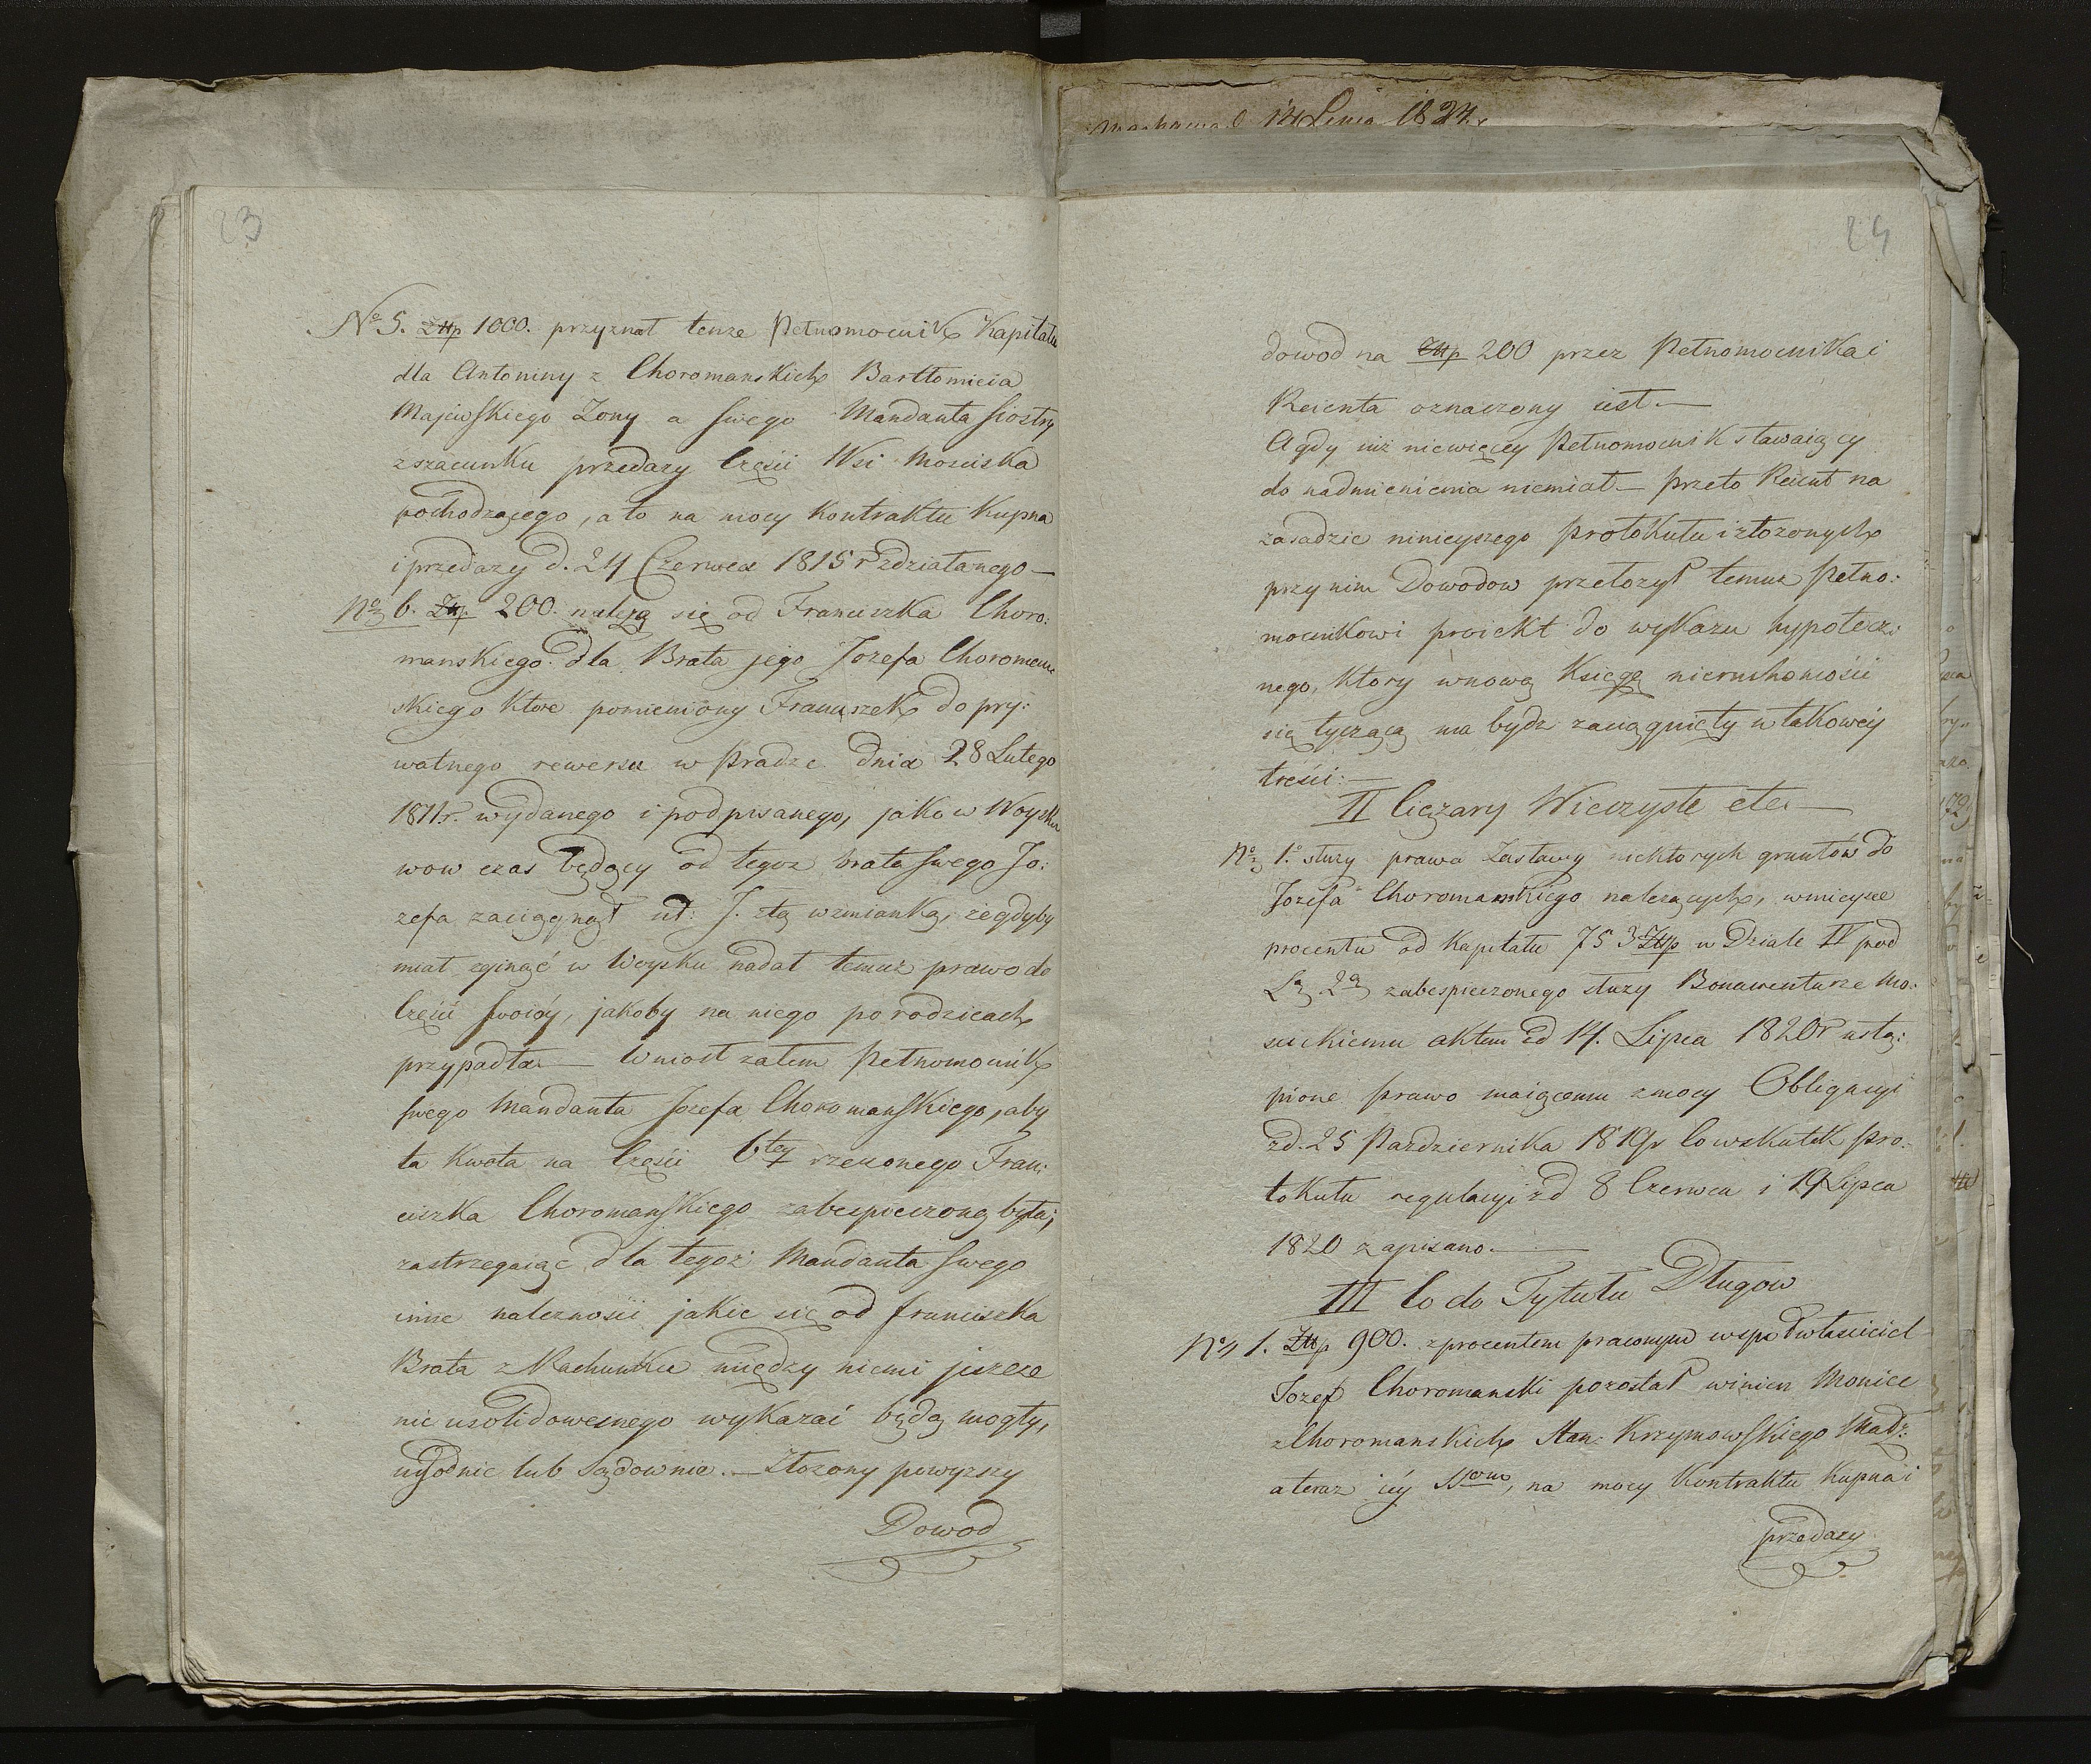 23
No 5. Złłp 1000. przyznał tenże Pełnomocnik Kapitału
dla Antoniny z Choromanskich Bartłomieia
Majewskiego Zony a swego Mandanta siostry
z szacunku przedaży Części Wsi Mosciska
pochodzącego, a to na mocy Kontraktu Kupna
i przedaży d. 24 Czerwca 1815 r zdziałanego —
No 6. Złłp 200. należą się od Franciszka Choro:
manskiego dla Brata jego Jozefa Choroman
skiego Ktore pomieniony Franciszek do pry:
watnego rewersu w Pradze dnia 28 Lutego
1811 r. wydanego i podpisanego, jako w Woysku
wow czas będący od tegoż brata swego Jo:
zefa zaciągnął ut: S. z tą wzmianką, że gdyby
miał zginąć w Woysku nadał temuż prawo do
Części swoióy, jakoby na niego po rodzicach
przypadła — Wniosł zatem Pełnomocnik
swego Mandanta Jozefa Choromanskiego, aby
ta Kwota na Części 6tey rzeczonego Fran:
ciszka Choromanskiego zabespieczoną była;
zastrzegaiąc dla tegoż Mandanta swego
inne należnosci jakie się od Franciszka
Brata z Rachunku między niemi jeszcze
nie usolidowanego wykazać będą mogły,
ugodnie lub Sądownie. — Złożony powyższy
Dowod
14 1824.
24
dowod na Złłp 200 przez Pełnomocnika i
Reienta oznaczony iest. —
A gdy iuż niewięcey Pełnomocnik stawaiący
do nadmienienia niemiał — przeto Reient na
zasadzie ninieyszego Protokułu i złożonych
przy nim Dowodow przełożył temuż Pełno:
mocnikowi proiekt do wykazu hypotecz:
nego, Ktory w nową Księgę nieruchomości
się tyczącą ma bydz zaciągnięty w takowéy
treści: —
II Ciężary Wieczyste etc. —
No 1o służy prawo Zastawy niektorych gruntów do
Jozefa Choromanskiego należących, w mieysce
procentu od Kapitału 753 Złłp w Dziale IV pod
La 2a zabespieczonego służy Bonawenturze Mo:
scickiemu aktem z d 14. Lipca 1820 r ustą:
pione Prawo maiącemu z mocy Obligacyi
z d. 25 Pazdziernika 1819 r Co w skutek Pro:
tokułu regulacyi z d 8 Czerwca i 19 Lipca
1820 zapisano. —
III Co do Tytułu Długow
No 1. Złłp 900. z procentem prawnym wspołwłaściciel
Jozef Choromanski pozostał winien Monice
z Choromanskich Stan: Krzymowskiego Małż:
a teraz iéy SSorom, na mocy Kontraktu Kupna i
przedaży